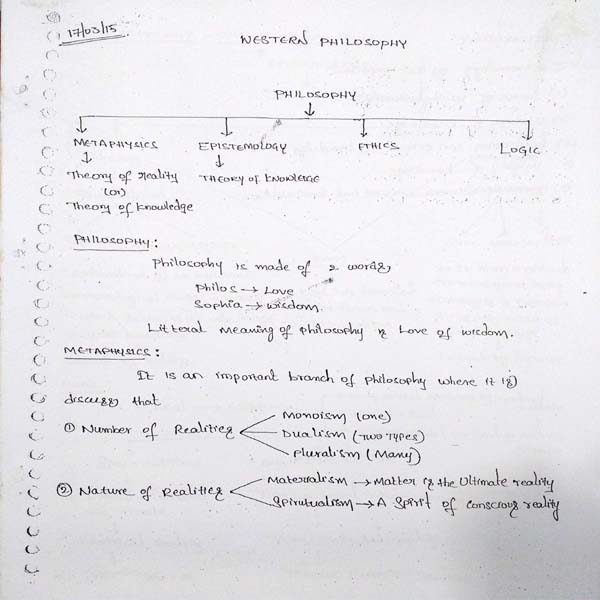 17/03/15
WESTERN PHILOSOPHY
PHILOSOPHY
METAPHYSICS EPISTEMOLOGY ETHICS LOGIC
Theory of reality THEORY OF KNOWLEDGE
(or)
Theory of knowledge
PHILOSOPHY:
Philosophy is made of 2 words,
Philos → Love
Sophia → wisdom.
Litteral meaning of philosophy is Love of wisdom.
METAPHYSICS:
It is an important branch of philosophy where it is
discuss that
① Number of Realities
Monoism (one)
Dualism (TWO TYPES)
Pluralism (Many)
② Nature of Realities
Materialism → Matter is the Ultimate reality
Spirutualism → A Spirit of conscious reality